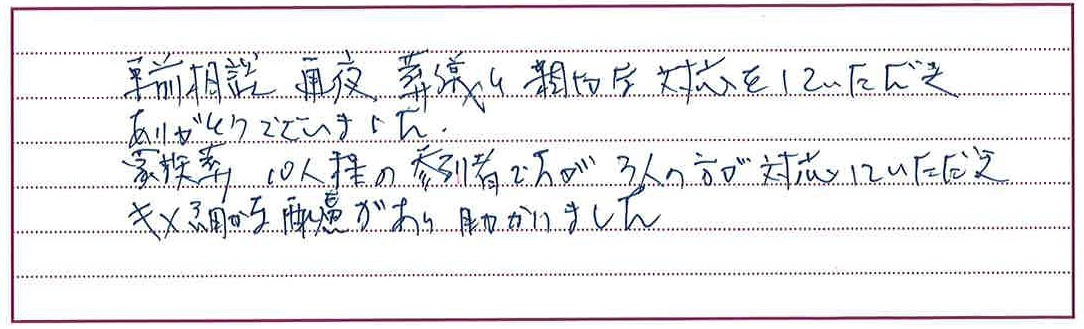 事前相談 通夜 葬儀と親切な対応をしていただき
ありがとうございました.
家族葬 10人程の参列者でしたが 3人の方が対応していただき
キメ細かな配慮があり助かりました